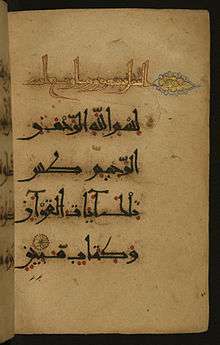 بسم الله الرحمن
الرحيم طس
تلك آيات القرآن
وكتاب مبين